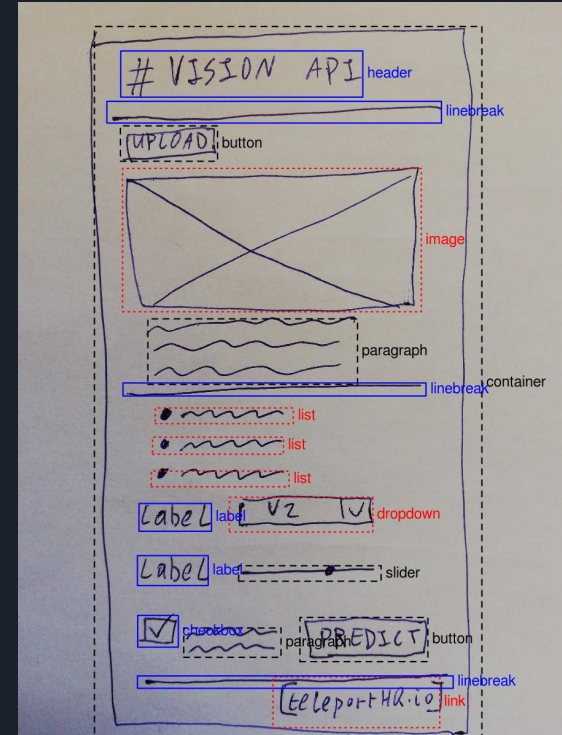 # VISION API header
linebreak
UPLOAD button
image
paragraph
linebreak container
list
list
list
Label label V2 dropdown
Label label slider
checkbox paragraph PREDICT button
linebreak
teleportHQ.io link